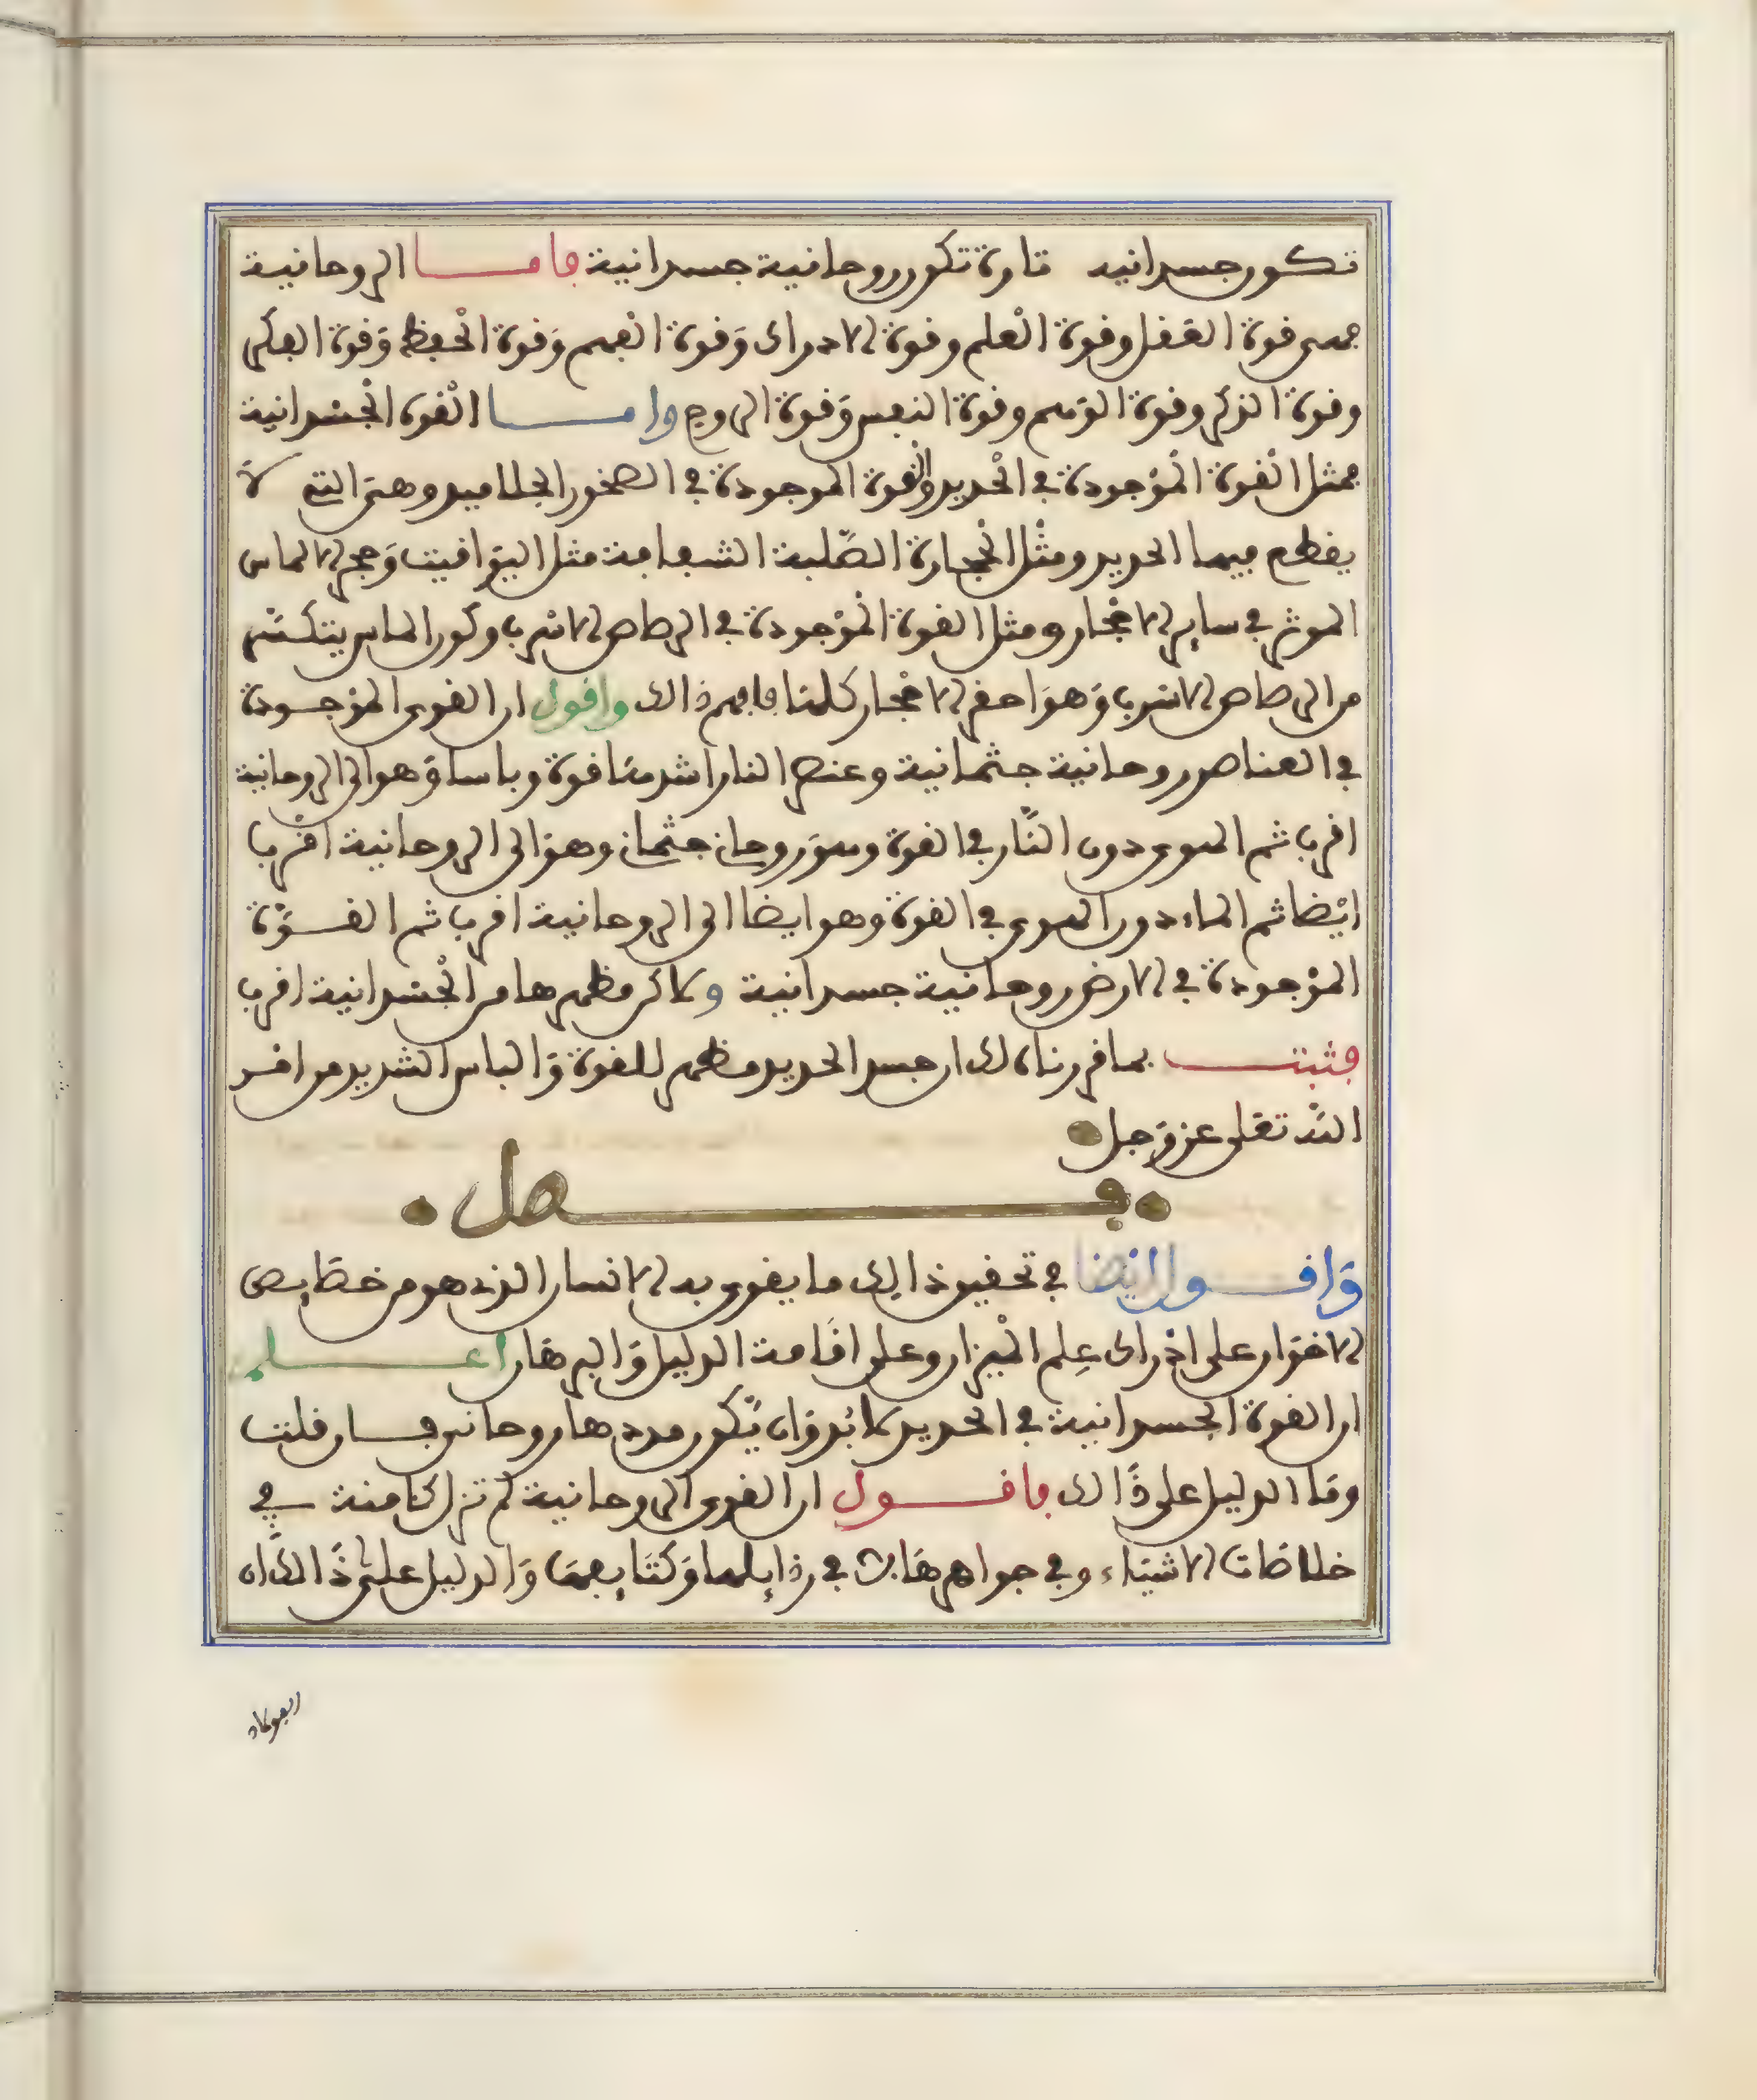 تكون جسدانيه تارة تكون روحانية جسدانية فاما الروحانية
فهي قوة العقل وقوة العلم وقوة الادراك وقوة الفهم وقوة الحفظ وقوة الفكر
وقوة الذكر وقوة الوهم وقوة النفس وقوة الروح واما القوة الجسدانية
فمثل القوة الموجودة في الحديد والقوة الموجودة في الصخور الجلاميد وهي التي لا
يقطع فيها الحديد ومثل الحجارة الصلبة الشفافة مثل اليواقيت وحجر الماس
الموثر في ساير الاحجار ومثل القوة الموجودة في الرصاص الاسرب وكون الماس يتكسر
من الرصاص الاسرب وهو احقر الاحجار كلها فافهم ذالك واقول ان القوى الموجودة
في العناصر روحانية جثمانية وعنصر النار اشد منها قوة وباسا وهو الى الروحانية
اقرب ثم الهوى دون النار في القوة وهو روحاني جثماني وهو الى الروحانية اقرب
ايضا ثم الماء دون الهوى في القوة وهو ايضا الى الروحانية اقرب ثم القوة
الموجودة في الارض روحانية جسدانية ولاكن مظهرها من الجسدانية اقرب
فثبت بما قررناه لك ان جسد الحديد مظهر للقوة والباس الشديد من امر
الله تعلى عز وجل
فصل
واقول ايضا في تحقيق ذالك ما يقوى به الانسان الذي هو من خصايص
الاخوان على ادراك علم الميزان وعلى اقامة الدليل والبرهان اعلم
ان القوة الجسدانية في الحديد لا بد وان يكون مددها روحاني فان قلت
وما الدليل على ذالك فاقول ان القوى الروحانية لم تزل كامنة في
خلاصات الاشياء وفي جواهرها لا في رذايلها وكثايفها والدليل على ذالك ان